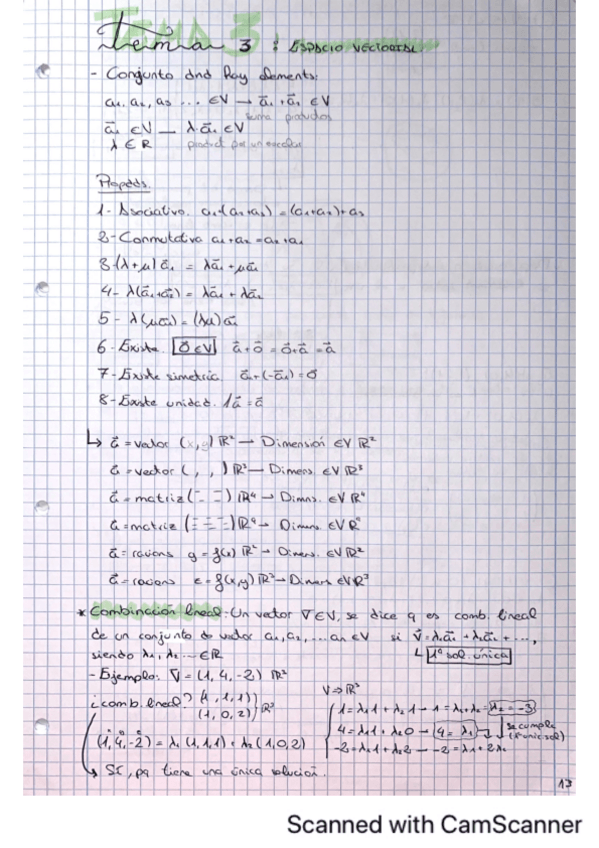 Tema 3
tema 3: ESPACIO VECTORIAL
- Conjunto dnd hay elements:
a₁, a₂, a₃ ... ∈V → a⃗₁ + a⃗₁ ∈V
suma
a⃗₁ ∈V — λ·a⃗₁ ∈V
λ ∈ R product por un escalar
Propedds.
1- Asociativo. a₁+(a₂+a₃) = (a₁+a₂)+a₃
2- Conmutativa a₁+a₂ = a₂+a₁
3- (λ+μ) a⃗₁ = λa⃗₁ + μa⃗₁
4- λ(a⃗₁+a⃗₂) = λa⃗₁ + λa⃗₂
5- λ(μa⃗₁) = (λμ)a⃗₁
6- Existe 0⃗∈V a⃗+0⃗ = 0⃗+a⃗ = a⃗
7- Existe simetric. a⃗₁+(-a⃗₁) = 0⃗
8- Existe unidad. 1a⃗ = a⃗
↳ a⃗ = vector (x, y) ℝ² → Dimensión ∈V ℝ²
a⃗ = vector ( , , ) ℝ³ — Dimens. ∈V ℝ³
a⃗ = matriz (= =) ℝ⁴ → Dimns. ∈V ℝ⁴
a⃗ = matriz Dimens. ∈V
a⃗ = y = f(x) ℝ² → Dimens. ∈V ℝ²
a⃗ = = f(x,y) ℝ³ → Dimens ∈V ℝ³
* Combinación lineal: Un vector v⃗∈V, se dice q es comb. lineal
de un conjunto de vector a₁, a₂, ... aₙ ∈V si v⃗ = λ₁a⃗₁ + λ₂a⃗₂ + ...,
siendo λ₁, λ₂ ... ∈ℝ ↳ 1ª sol. única
- Ejemplo: v⃗ = (1, 4, -2) ℝ³
¿comb. lineal? (1, 1, 1) V→ℝ³
(1, 0, 2) ℝ³ 1 = λ₁1 + λ₂1 → 1 = λ₁+λ₂ = λ₂ = -3
4 = λ₁1 + λ₂0 → 4 = λ₁ se cumple
(1, 4, -2) = λ₁ (1, 1, 1) + λ₂ (1, 0, 2) -2 = λ₁1 + λ₂2 — -2 = λ₁ + 2λ₂
↳ SÍ, pq tiene una única solución.
17
Scanned with CamScanner